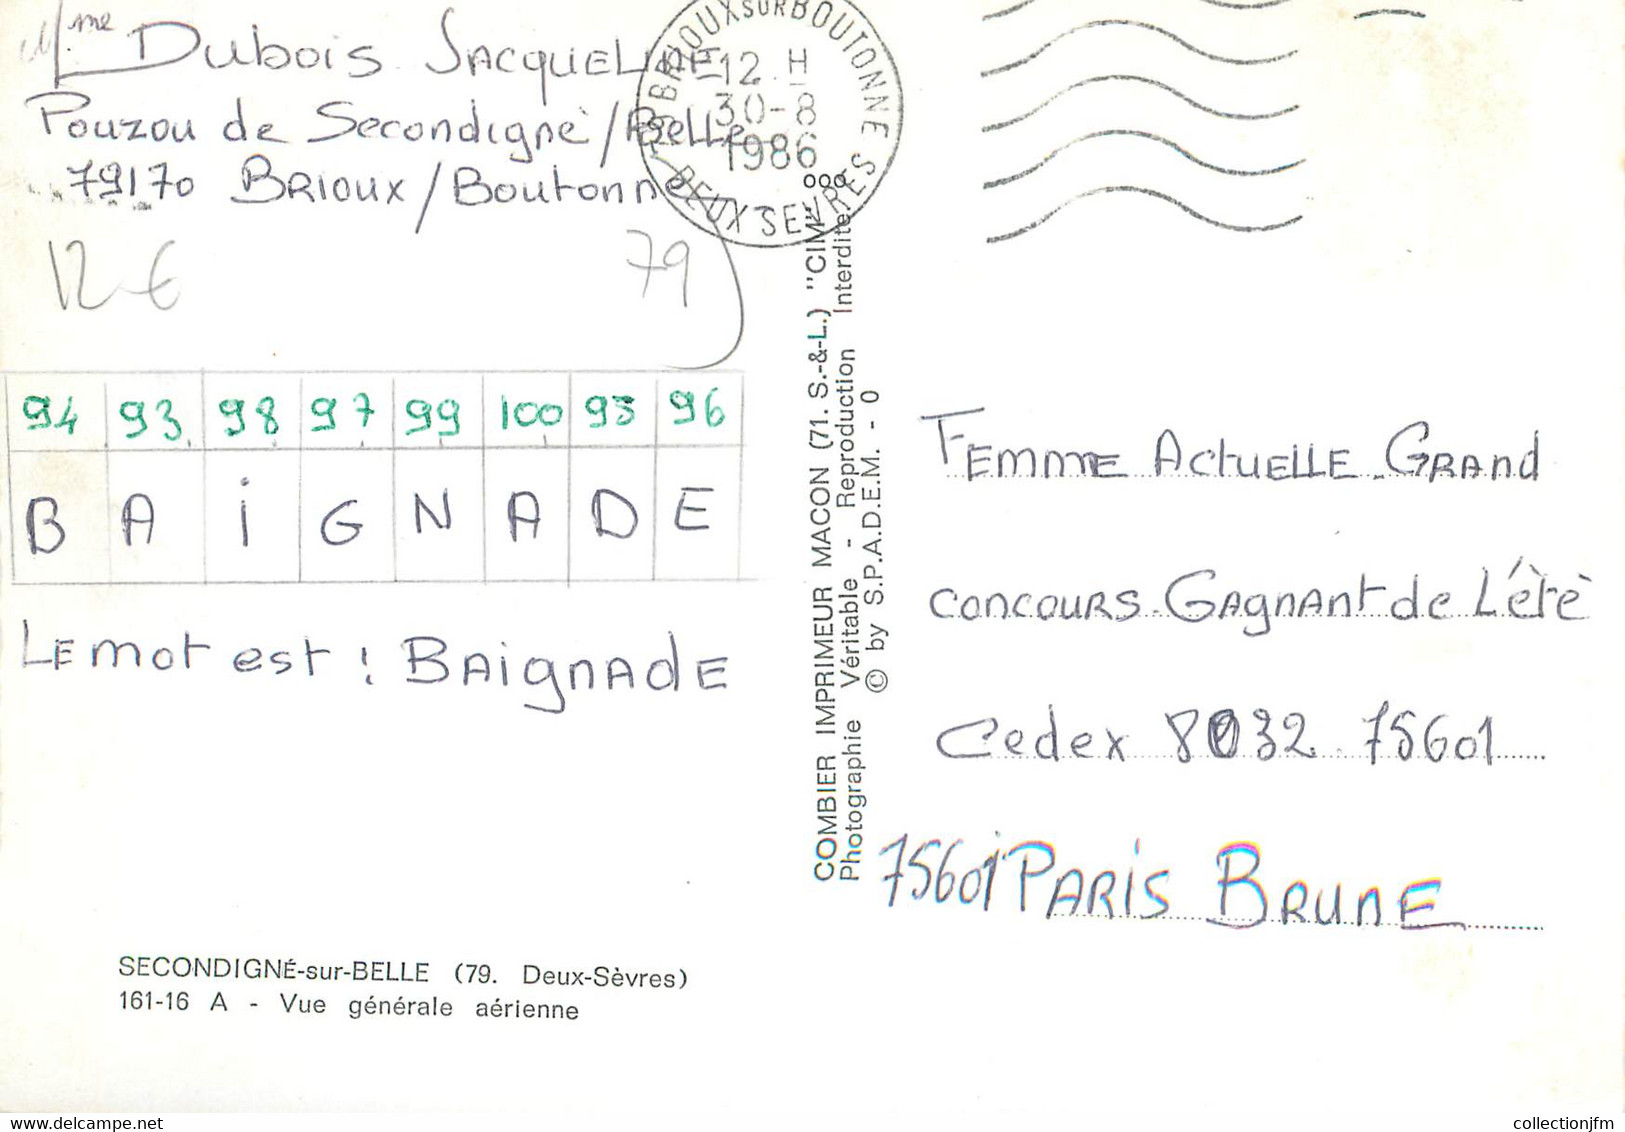 Mme Dubois Jacqueline
Pouzou de Secondigné/Belle
79170 Brioux/Boutonne
12 €
79
94 93 98 97 99 100 95 96
B A I G N A D E
Le mot est : Baignade
SECONDIGNÉ-sur-BELLE (79. Deux-Sèvres)
161-16 A - Vue générale aérienne
79 BRIOUX SUR BOUTONNE
12 H
30-8
1986
DEUX SEVRES
COMBIER IMPRIMEUR MACON (71. S.-&-L.) "CIM"
Photographie Véritable - Reproduction Interdite.
© by S.P.A.D.E.M. - 0
Femme Actuelle Grand
concours Gagnant de L'étè
Cedex 8032 75601
75601 Paris Brune
collectionjfm